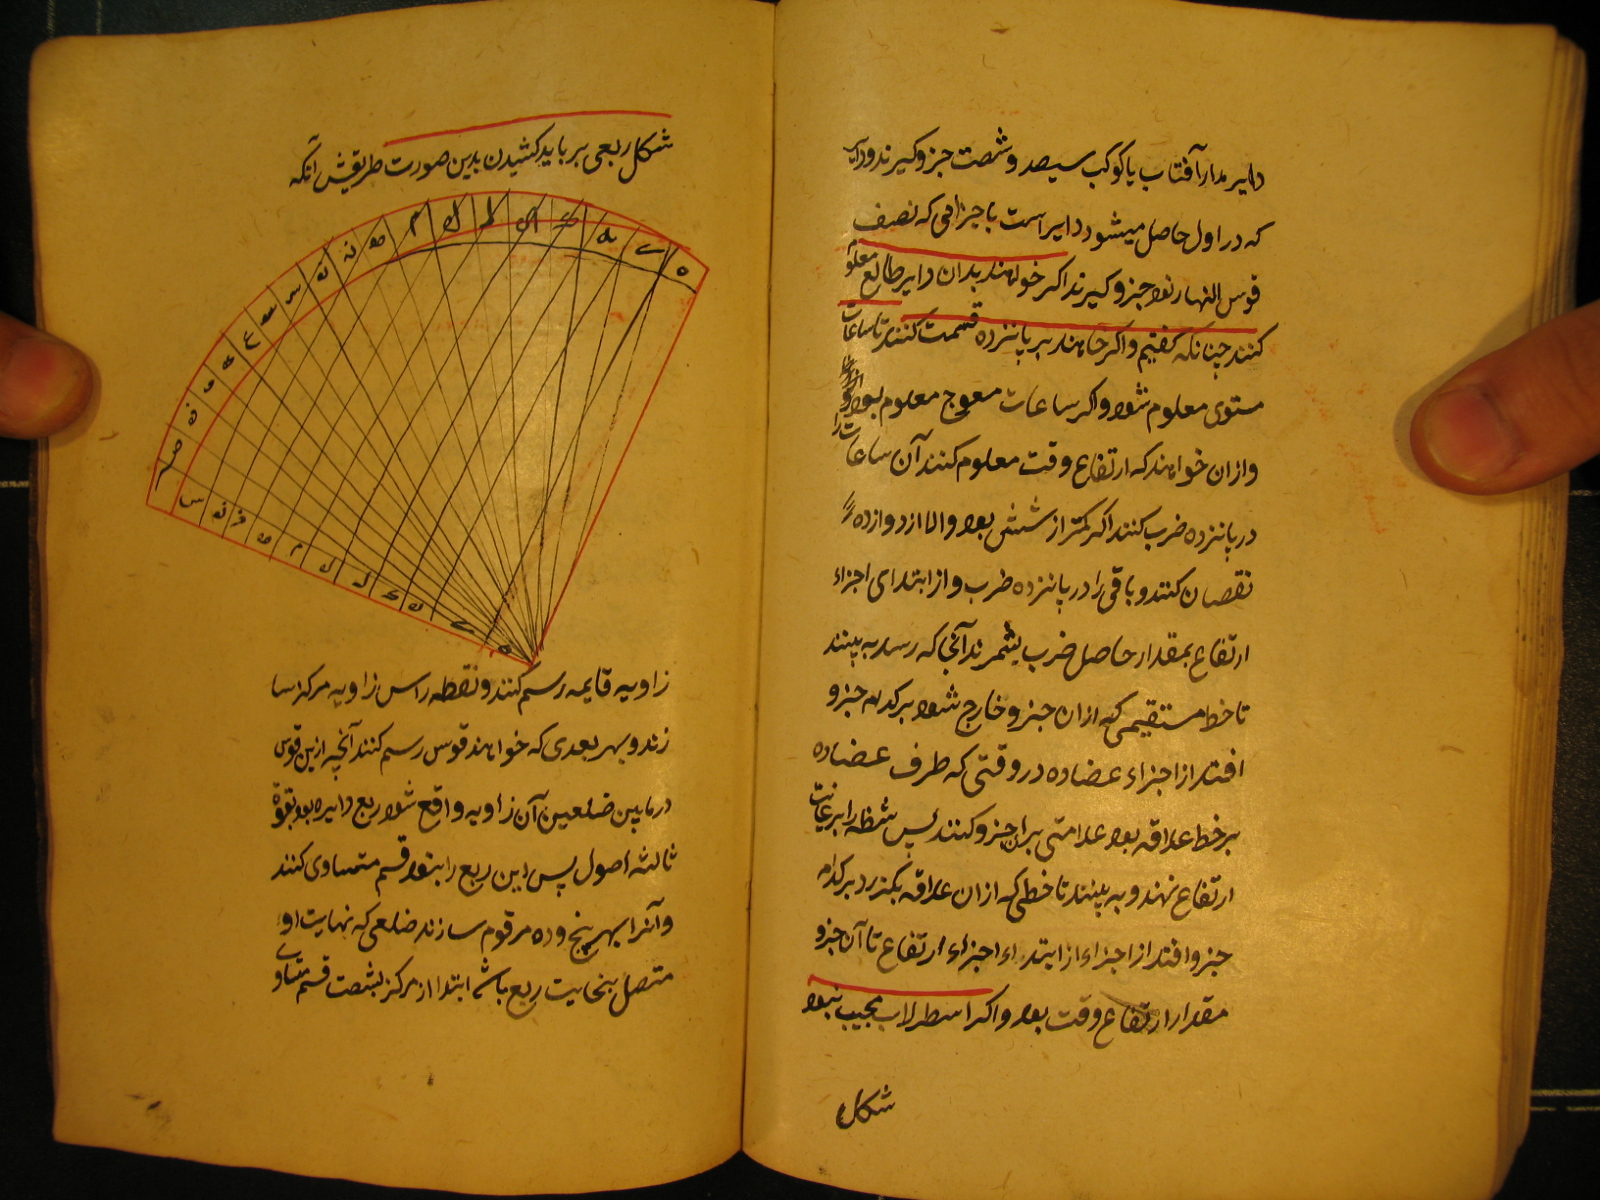 دایر مدار آفتاب یا کوکب سیصد و شصت جزو کیرند و دایر
که در اول حاصل میشود دایر است با جیزاهی که نصف
قوس النهار نود جزو کیرند اکر خواهند بدان دایر طالع معلوم
کنند چنانکه کفتیم و اکر خواهند بر پانزده قسمت کنند تا ساعات
مستوی معلوم شود و اکر ساعات معوج معلوم بود
و از ان خواهند که ارتفاع وقت معلوم کنند آن ساعات را
در پانزده ضرب کنند اکر کمتر از شش بود و الا از دوازده
نقصان کنند و باقی را در پانزده ضرب و از ابتدای اجزاء
ارتفاع بمقدار حاصل ضرب بشمرند آنجا که رسد به بینند
تا خط مستقیمی که از ان جزو خارج شود بر کدام جزو
افتد از اجزاء عضاده در وقتی که طرف عضاده
بر خط علاقه بود علامتی بران جزو کنند پس شظه را بر غایت
ارتفاع نهند و به بینند تا خطی که از ان علاقه بکذرد بر کدام
جزو افتد از اجزاء از ابتداء اجزاء ارتفاع تا آن جزو
مقدار ارتفاع وقت بود و اکر اسطرلاب مجیب نبود
شکل
شکل ربعی بر باید کشیدن بدین صورت طریقش آنکه
زاویه قایمه رسم کنند و نقطه راس زاویه مرکز سا
زند و بهر بعدی که خواهند قوس رسم کنند آنچه ازین قوس
در مابین ضلعین آن زاویه واقع شود ربع دایره بود بقوة
ثالثه اصول پس این ربع را بنود قسم متساوی کنند
و آنرا بهر پنج و ده مرقوم سازند ضلعی که نهایت او
متصل بنهایت ربع باشد ابتدا از مرکز بشصت قسم متساوی